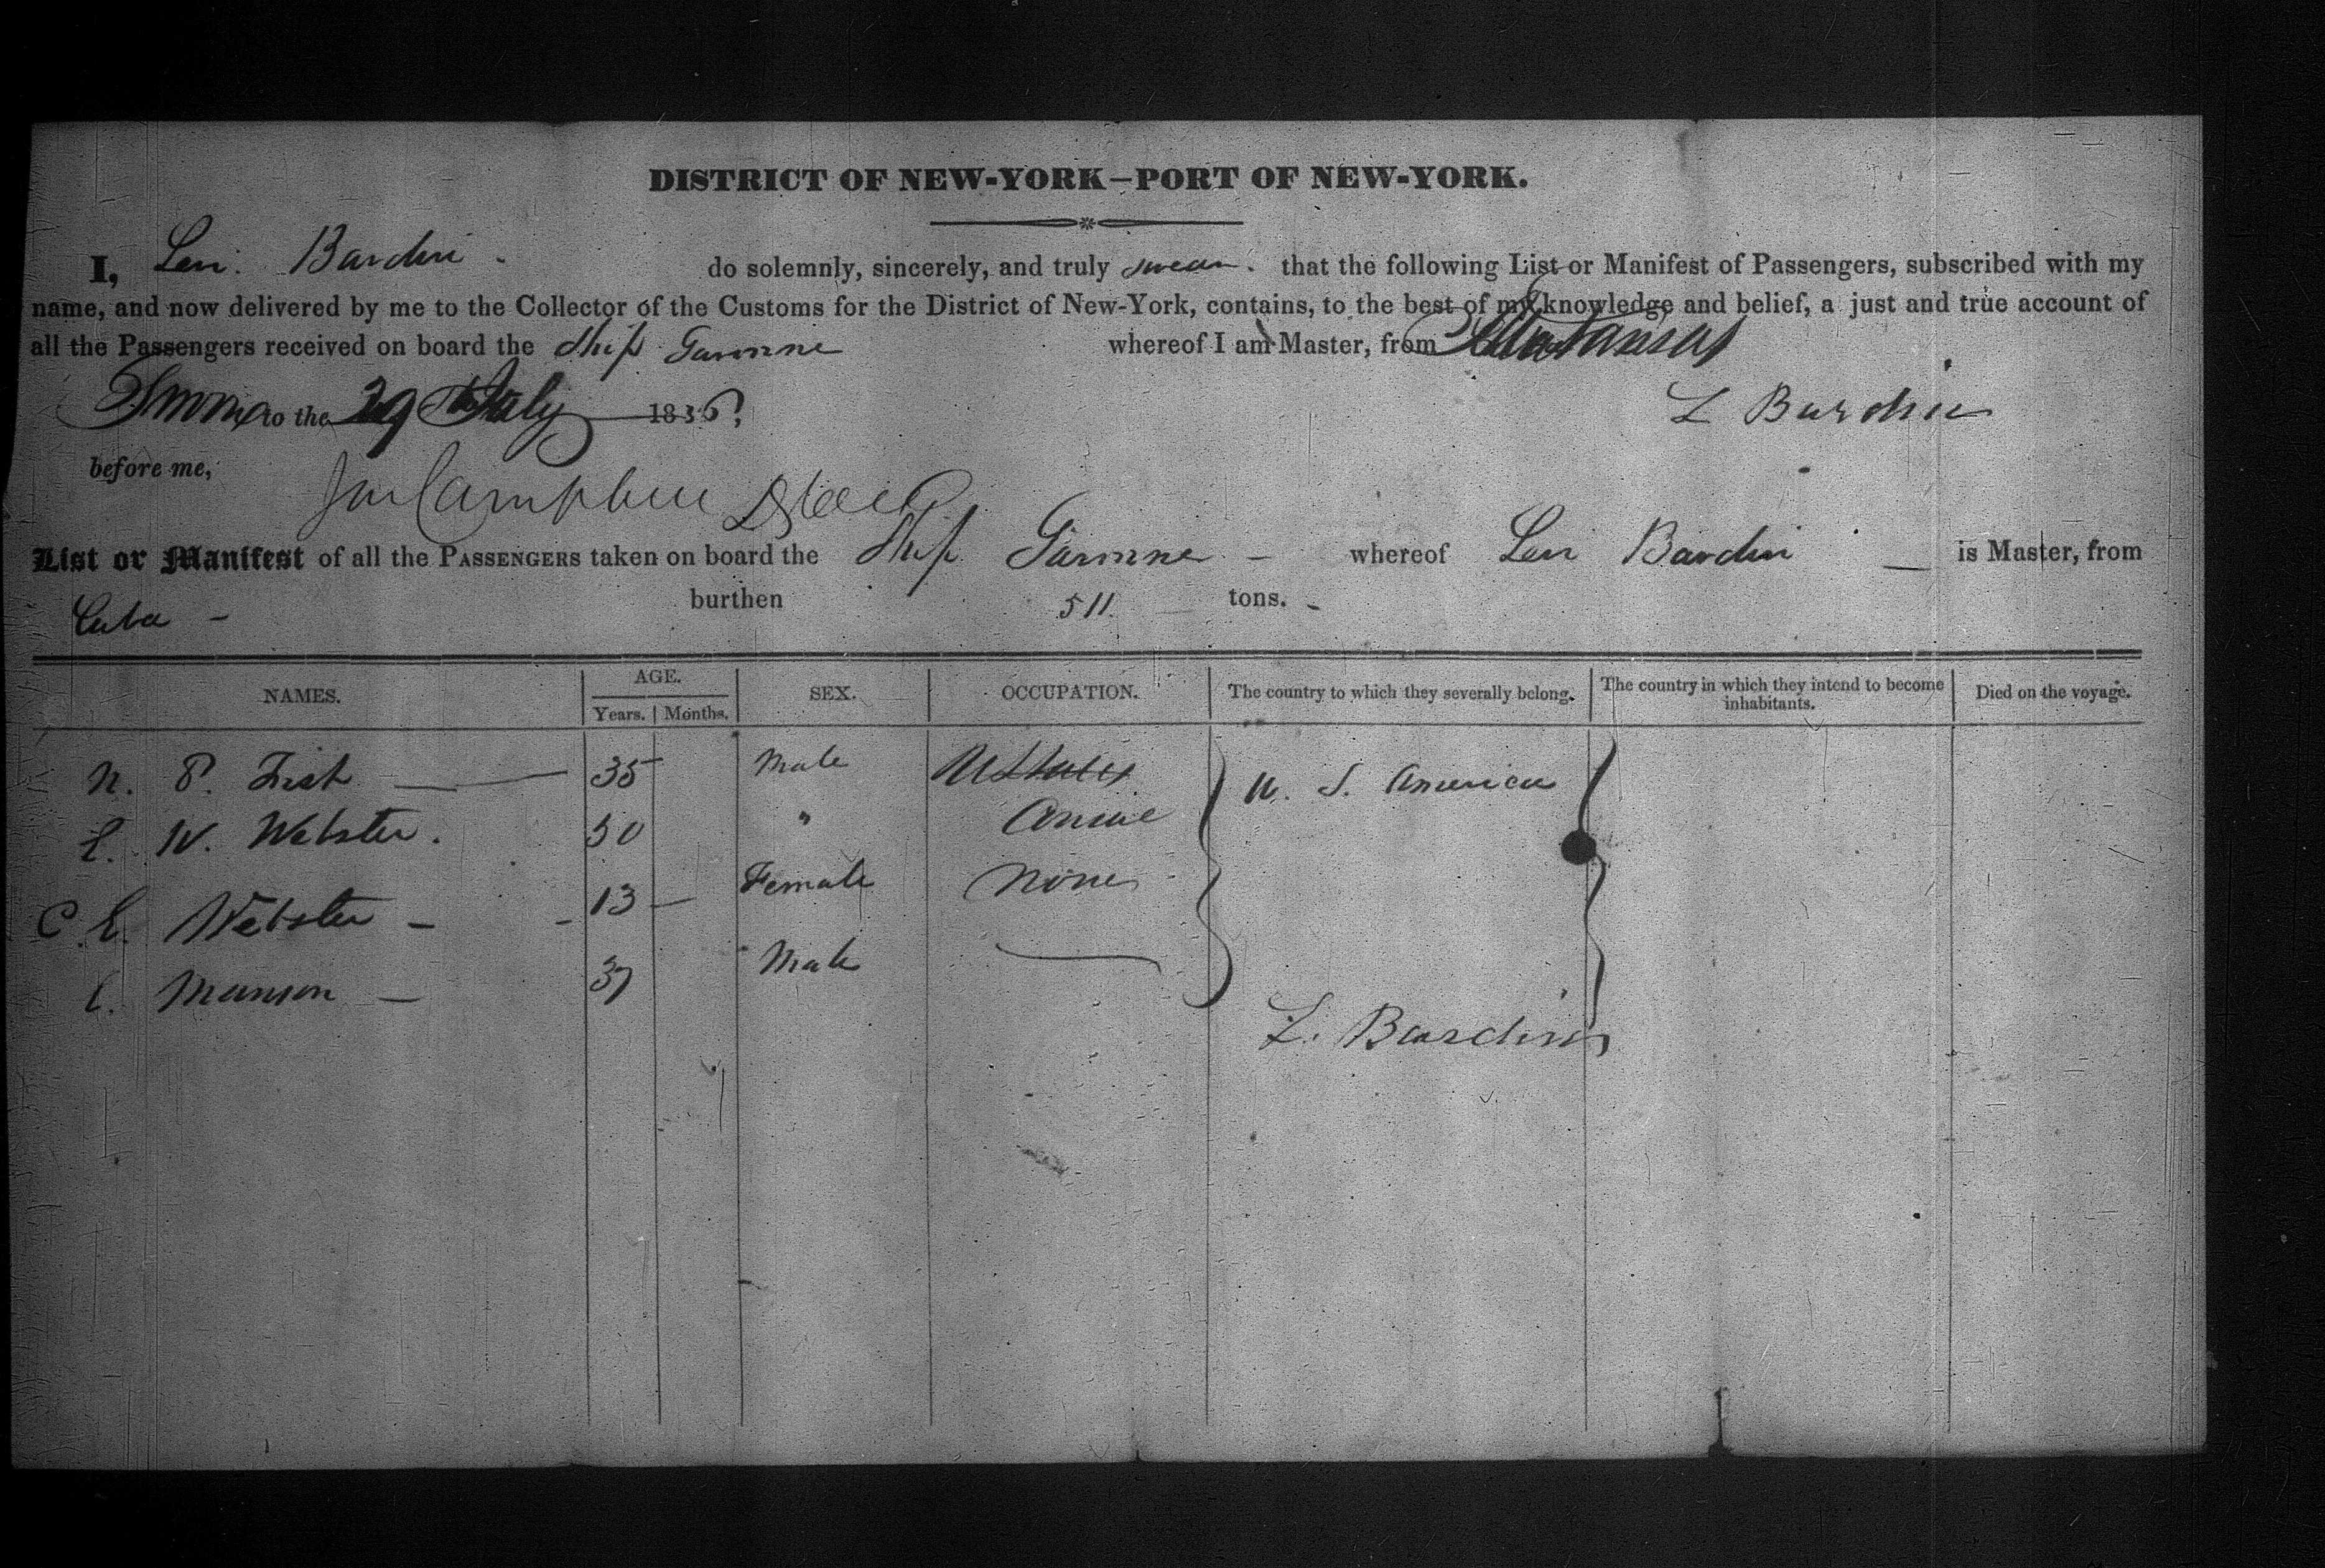 DISTRICT OF NEW-YORK—PORT OF NEW-YORK.
I, Levi Bardin do solemnly, sincerely, and truly swear that the following List or Manifest of Passengers, subscribed with my
name, and now delivered by me to the Collector of the Customs for the District of New-York, contains, to the best of my knowledge and belief, a just and true account of
all the Passengers received on board the Ship Garonne whereof I am Master, from Matansas
Sworn to the 29 July 1836
L Bardin
before me,
List or Manifest of all the PASSENGERS taken on board the Ship Garonne whereof Levi Bardin is Master, from
Cuba burthen 511 tons.
NAMES. AGE. Years. Months. SEX. OCCUPATION. The country to which they severally belong. The country in which they intend to become inhabitants. Died on the voyage.
N. P. Trist 35 Male U States U. S. America
L. W. Webster. 50 "
C. E. Webster 13 Female None
C. Munson 37 Male
L. Bardin